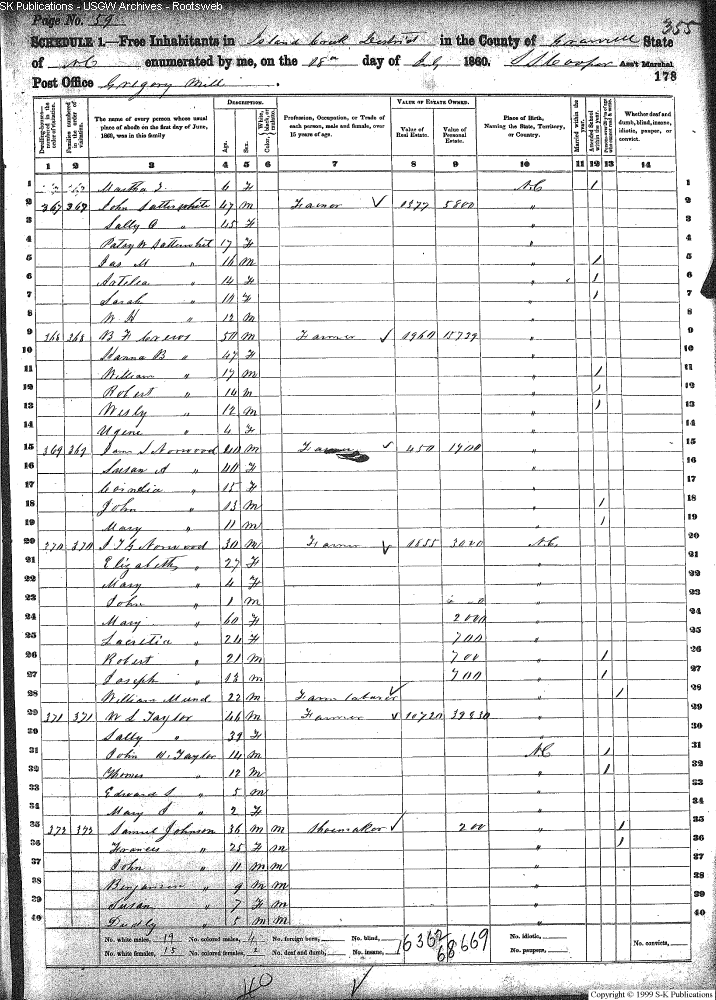 SK Publications - USGW Archives - Rootsweb
Page No. 59
355
SCHEDULE 1.—Free Inhabitants in Island Creek District in the County of Granville State
of NC enumerated by me, on the day of July 1860. Cooper Ass't Marshal
178
Post Office Gregory Mill.
DESCRIPTION. VALUE OF ESTATE OWNED.
Dwelling-houses—numbered in the order of visitation. Families numbered in the order of visitation. The name of every person whose usual place of abode on the first day of June, 1860, was in this family. Age. Sex. Color, White, black, or mulatto. Profession, Occupation, or Trade of each person, male and female, over 15 years of age. Value of Real Estate. Value of Personal Estate. Place of Birth, Naming the State, Territory, or Country. Married within the year. Attended School within the year. Whether deaf and dumb, blind, insane, idiotic, pauper, or convict.
1 2 3 4 5 6 7 8 9 10 11 12 13 14
1 Martha 6 F NC / 1
2 267 267 John Satterwhite 47 M Farmer 1377 5800 " 2
3 Sally A " 45 F " 3
4 Patsy W 17 F " 4
5 Jas M " 16 M " / 5
6 Artelia " 14 F " / 6
7 Sarah " F " / 7
8 W H " 12 M " 8
9 268 268 B F Crews 50 M Farmer 1960 " 9
10 Hanna B " 47 F " 10
11 William " 17 M " / 11
12 Robert " 14 M " / 12
13 Wesly " 12 M " / 13
14 Ugene " 4 F " 14
15 269 269 Norwood M Farmer 450 1900 " 15
16 Susan A " 40 F " 16
17 " 15 F " 17
18 John " 13 M " / 18
19 Mary " 11 M " / 19
20 270 270 Norwood 30 M Farmer 1655 3000 NC 20
21 Elizabeth " 27 F " 21
22 Mary " 4 F " 22
23 John " 1 M " 23
24 Mary " 60 F 2000 " 24
25 Lucretia " 24 F 700 " 25
26 Robert " 21 M 700 " / 26
27 Joseph " M 700 " / 27
28 William Mund 22 M Farm laborer " / 28
29 271 271 W L Taylor 46 M Farmer 10720 " 29
30 Sally " 39 F " 30
31 John W. Taylor 14 M NC / 31
32 Thomas " 12 M " / 32
33 Edward S " 5 M " 33
34 Mary " 2 F " 34
35 272 272 Samuel Johnson 36 M M Shoemaker 200 " / 35
36 Frances " 25 F M " / 36
37 John " 11 M M " 37
38 Benjamin " 9 M M " 38
39 Susan " 7 F M " 39
40 Dudly " 5 M M " 40
No. white males, 19 No. colored males, 4 No. foreign born, No. blind, 16362 68669 No. idiotic, No. convicts,
No. white females, 15 No. colored females, 2 No. deaf and dumb, No. insane, No. paupers,
40
Copyright © 1999 S-K Publications